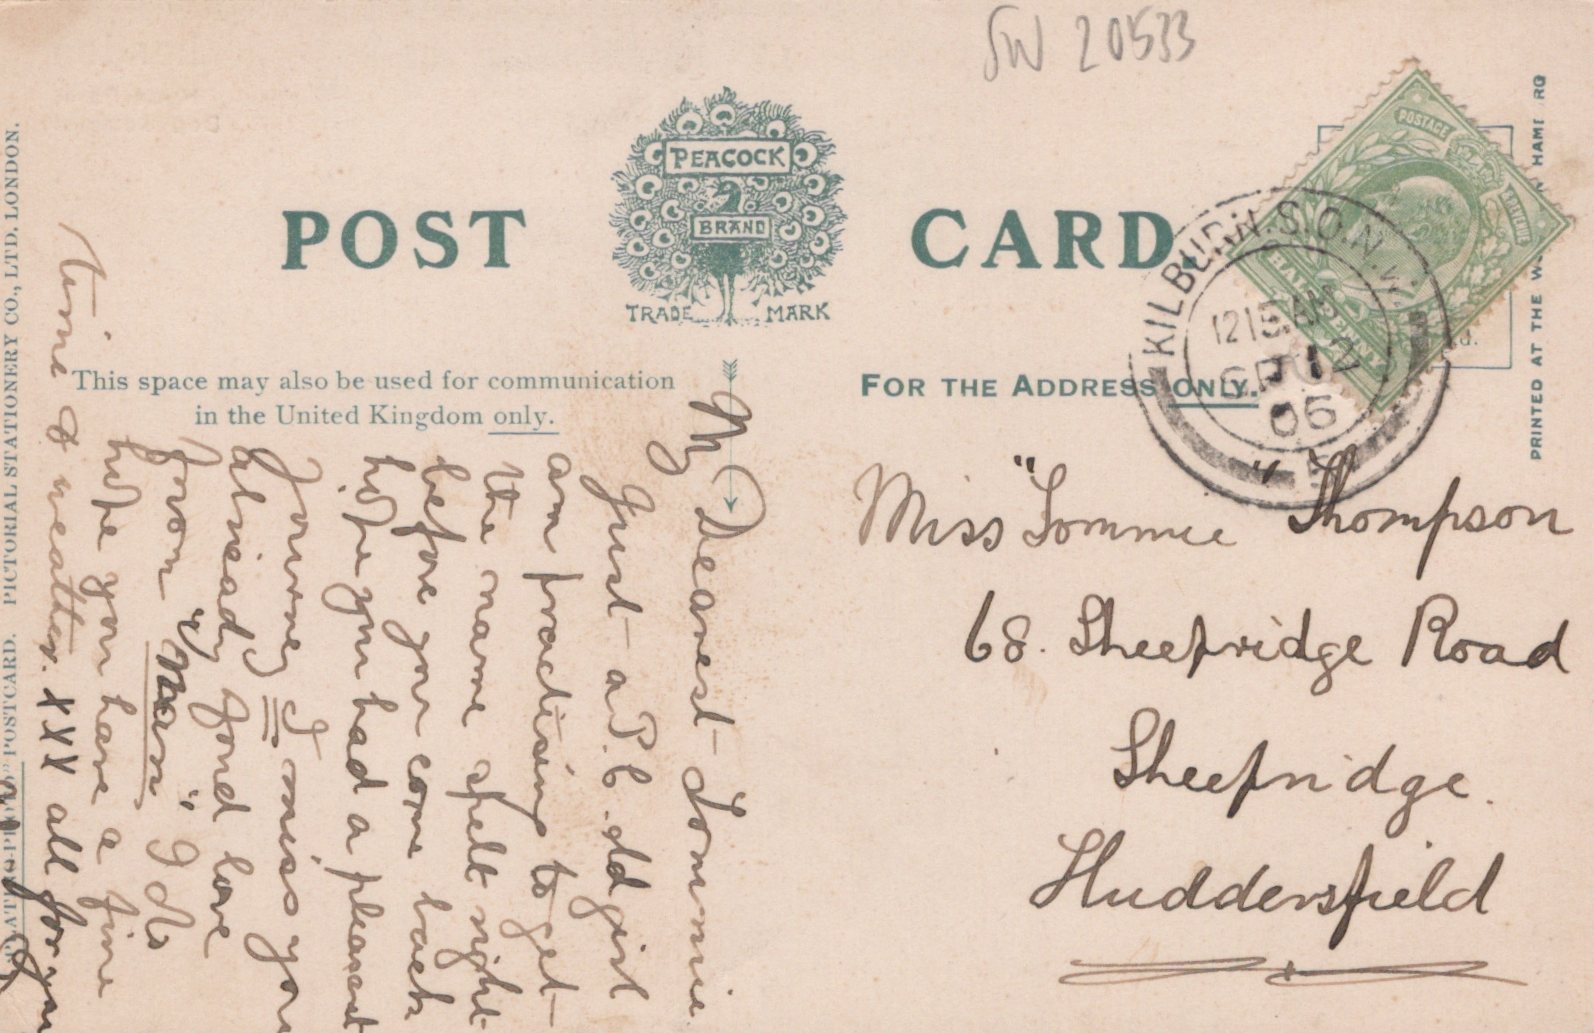 SW 20533
POST CARD
PEACOCK
BRAND
TRADE MARK
This space may also be used for communication
in the United Kingdom only.
FOR THE ADDRESS ONLY.
POSTAGE
REVENUE
HALFPENNY
KILBURN. S.O. N.W.
12 15 AM
SP 12
06
PRINTED AT THE
PICTORIAL STATIONERY CO., LTD. LONDON.
POSTCARD.
Miss "Tommie" Thompson
68. Sheepridge Road
Sheepridge.
Huddersfield
My Dearest Tommie
Just a P.C. old girl
am practising to get
the name spelt right
before you come back
hope you had a pleasant
journey I miss you
already fond love
from "Nan" I do
hope you have a fine
time & weather. XXX all for you